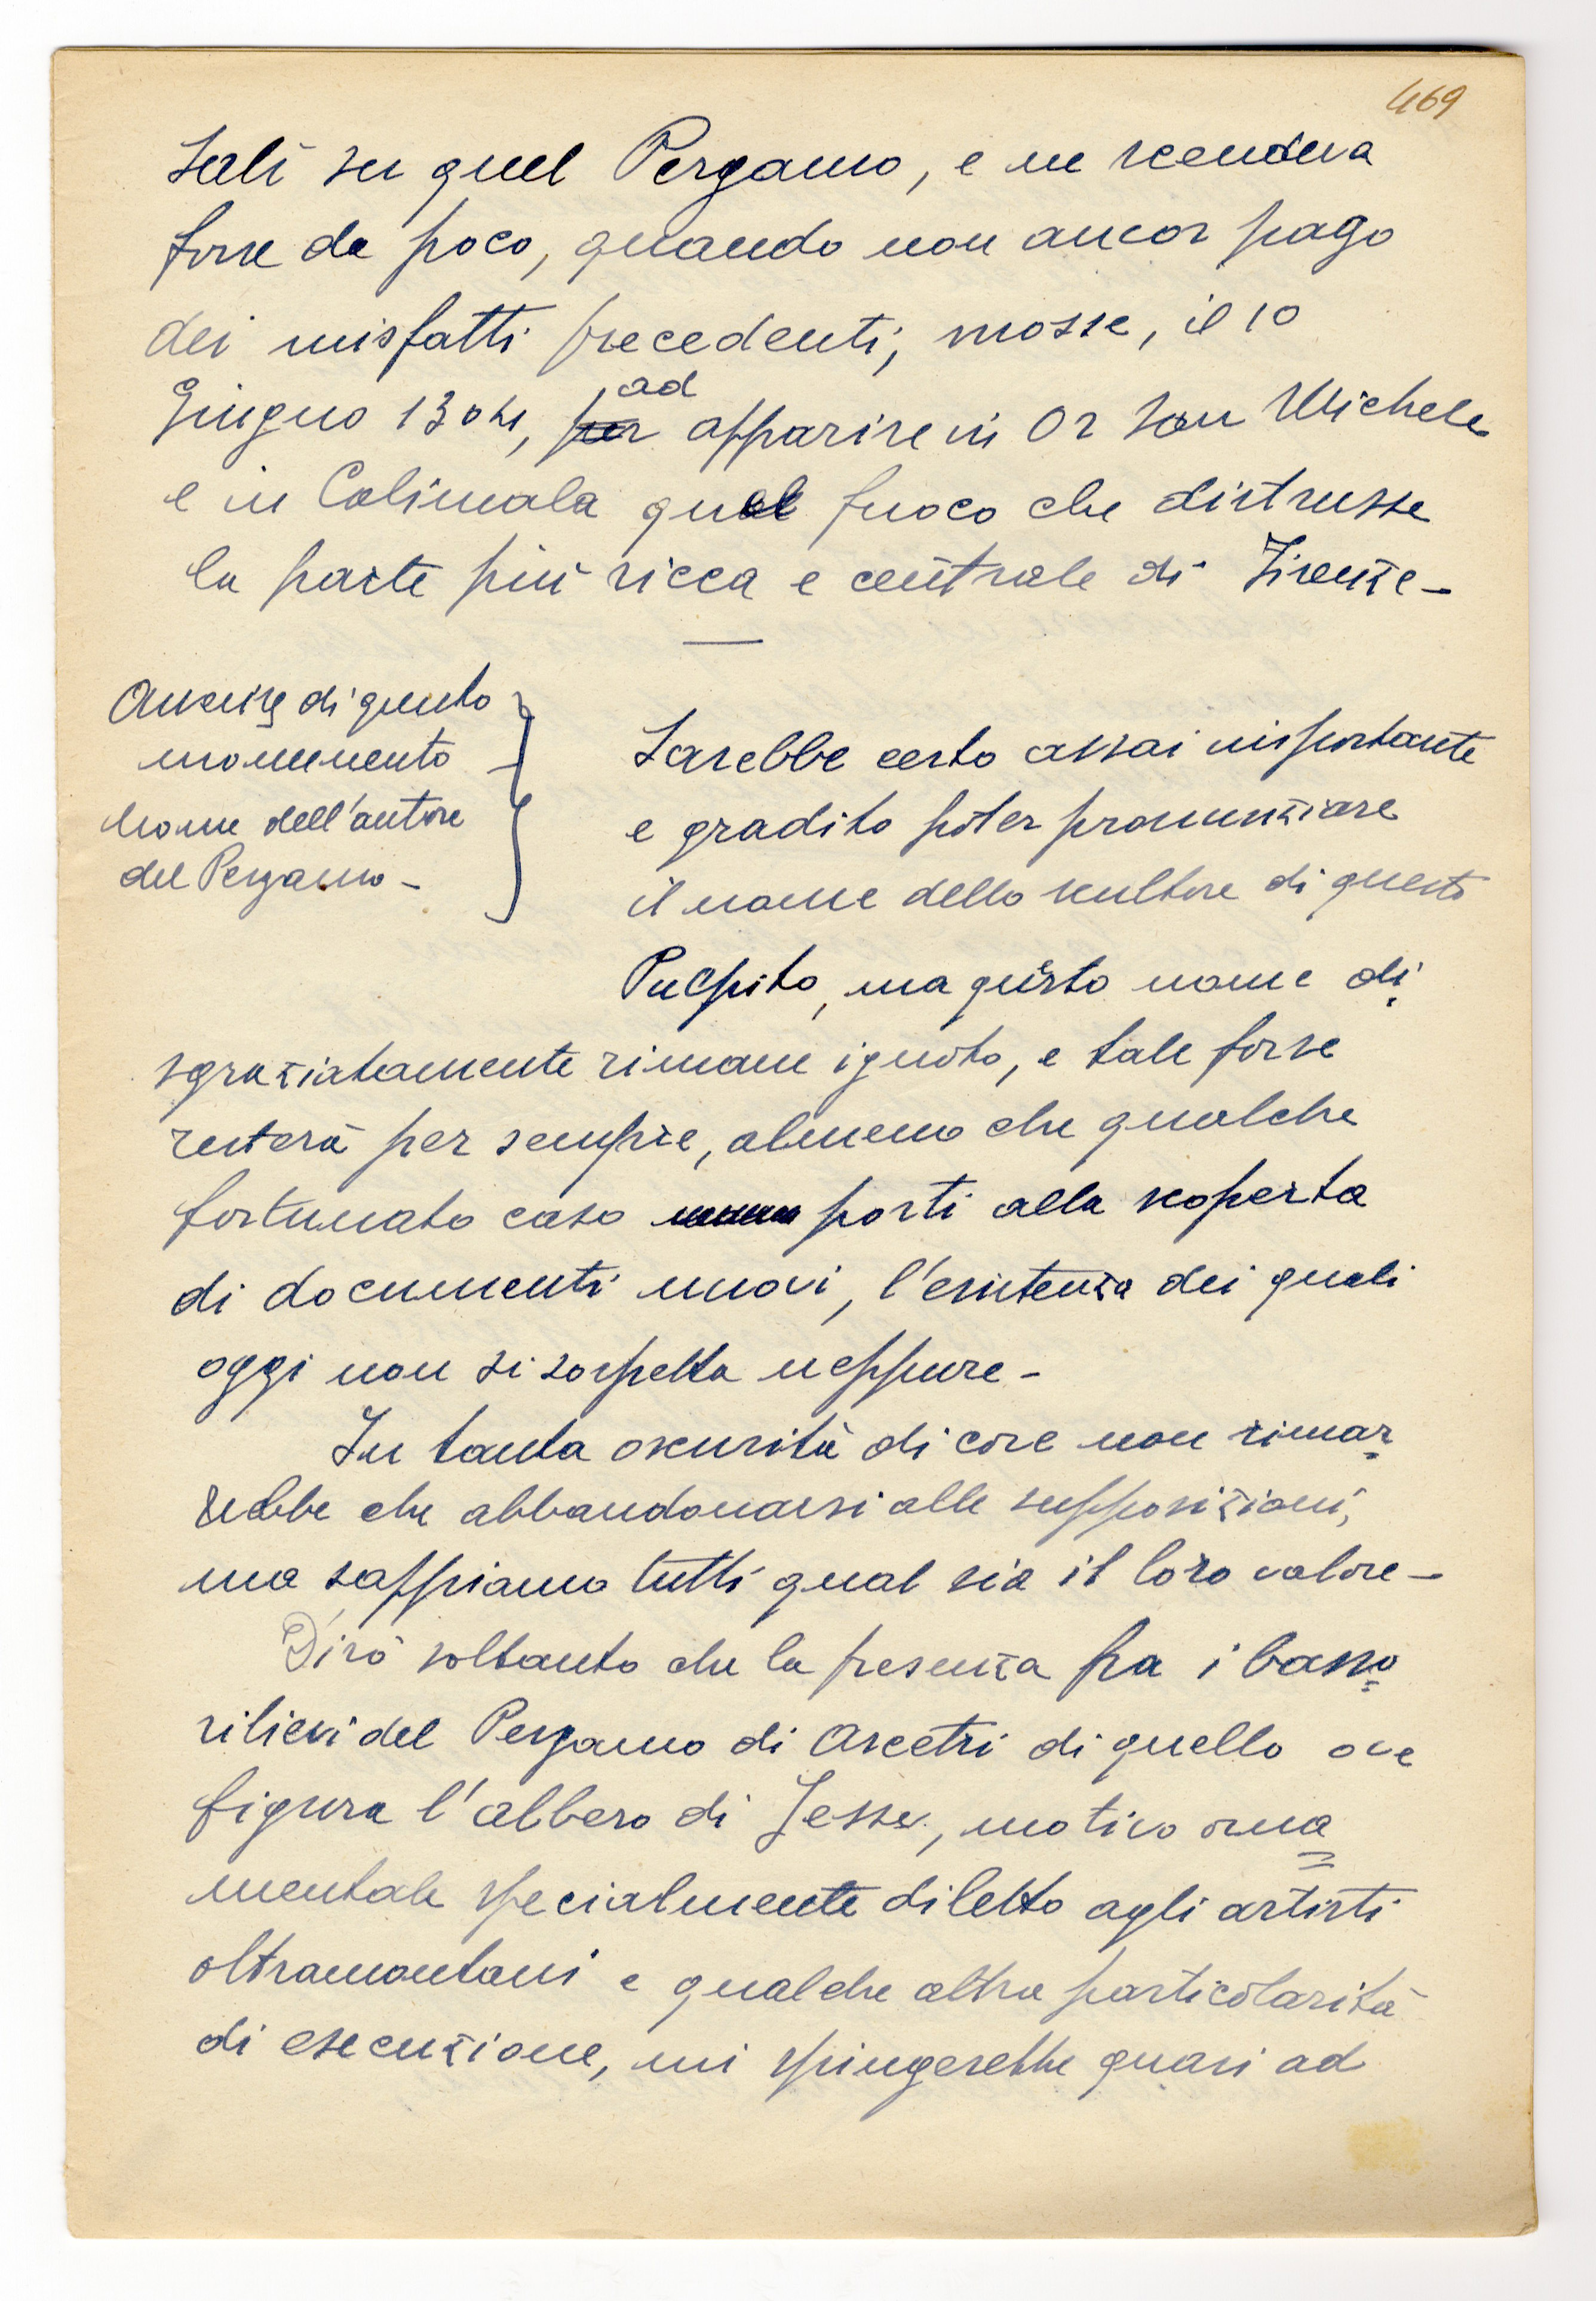 469
salì su quel Pergamo, e ne scendeva
forse da poco, quando non ancor pago
dei misfatti precedenti, mosse, il 10
Giugno 1304, per ad apparire in Or San Michele
e in Calimala quel fuoco che distrusse
la parte più ricca e centrale di Firenze -
di questo
monumento
Nome dell'autore
del Pergamo -
Sarebbe certo assai importante
e gradito poter pronunziare
il nome dello scultore di questo
Pulpito, ma questo nome di
sgraziatamente rimane ignoto, e tale forse
resterà per sempre, almeno che qualche
fortunato caso porti alla scoperta
di documenti nuovi, l'esistenza dei quali
oggi non si sospetta neppure -
In tanta oscurità di cose non rimar=
rebbe che abbandonarsi alle supposizioni,
ma sappiamo tutti qual sia il loro valore -
Dirò soltanto che la presenza fra i basso=
rilievi del Pergamo di Arcetri di quello ove
figura l'albero di Jesse, motivo orna=
mentale specialmente diletto agli artisti
oltramontani e qualche altra particolarità
di esecuzione, mi spingerebbe quasi ad